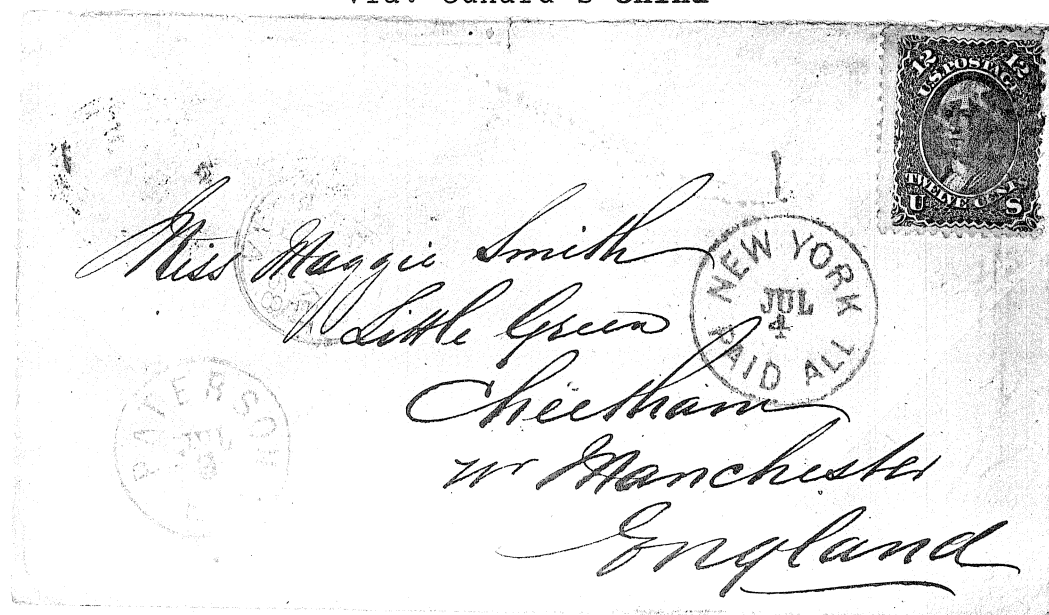 via. Cunard's China
12 12
U.S. POSTAGE
TWELVE CENTS
U S
Miss Maggie Smith
Little Green
Cheetham
nr Manchester
England
NEW YORK
JUL
4
PAID ALL
PATERSON
JUL
3